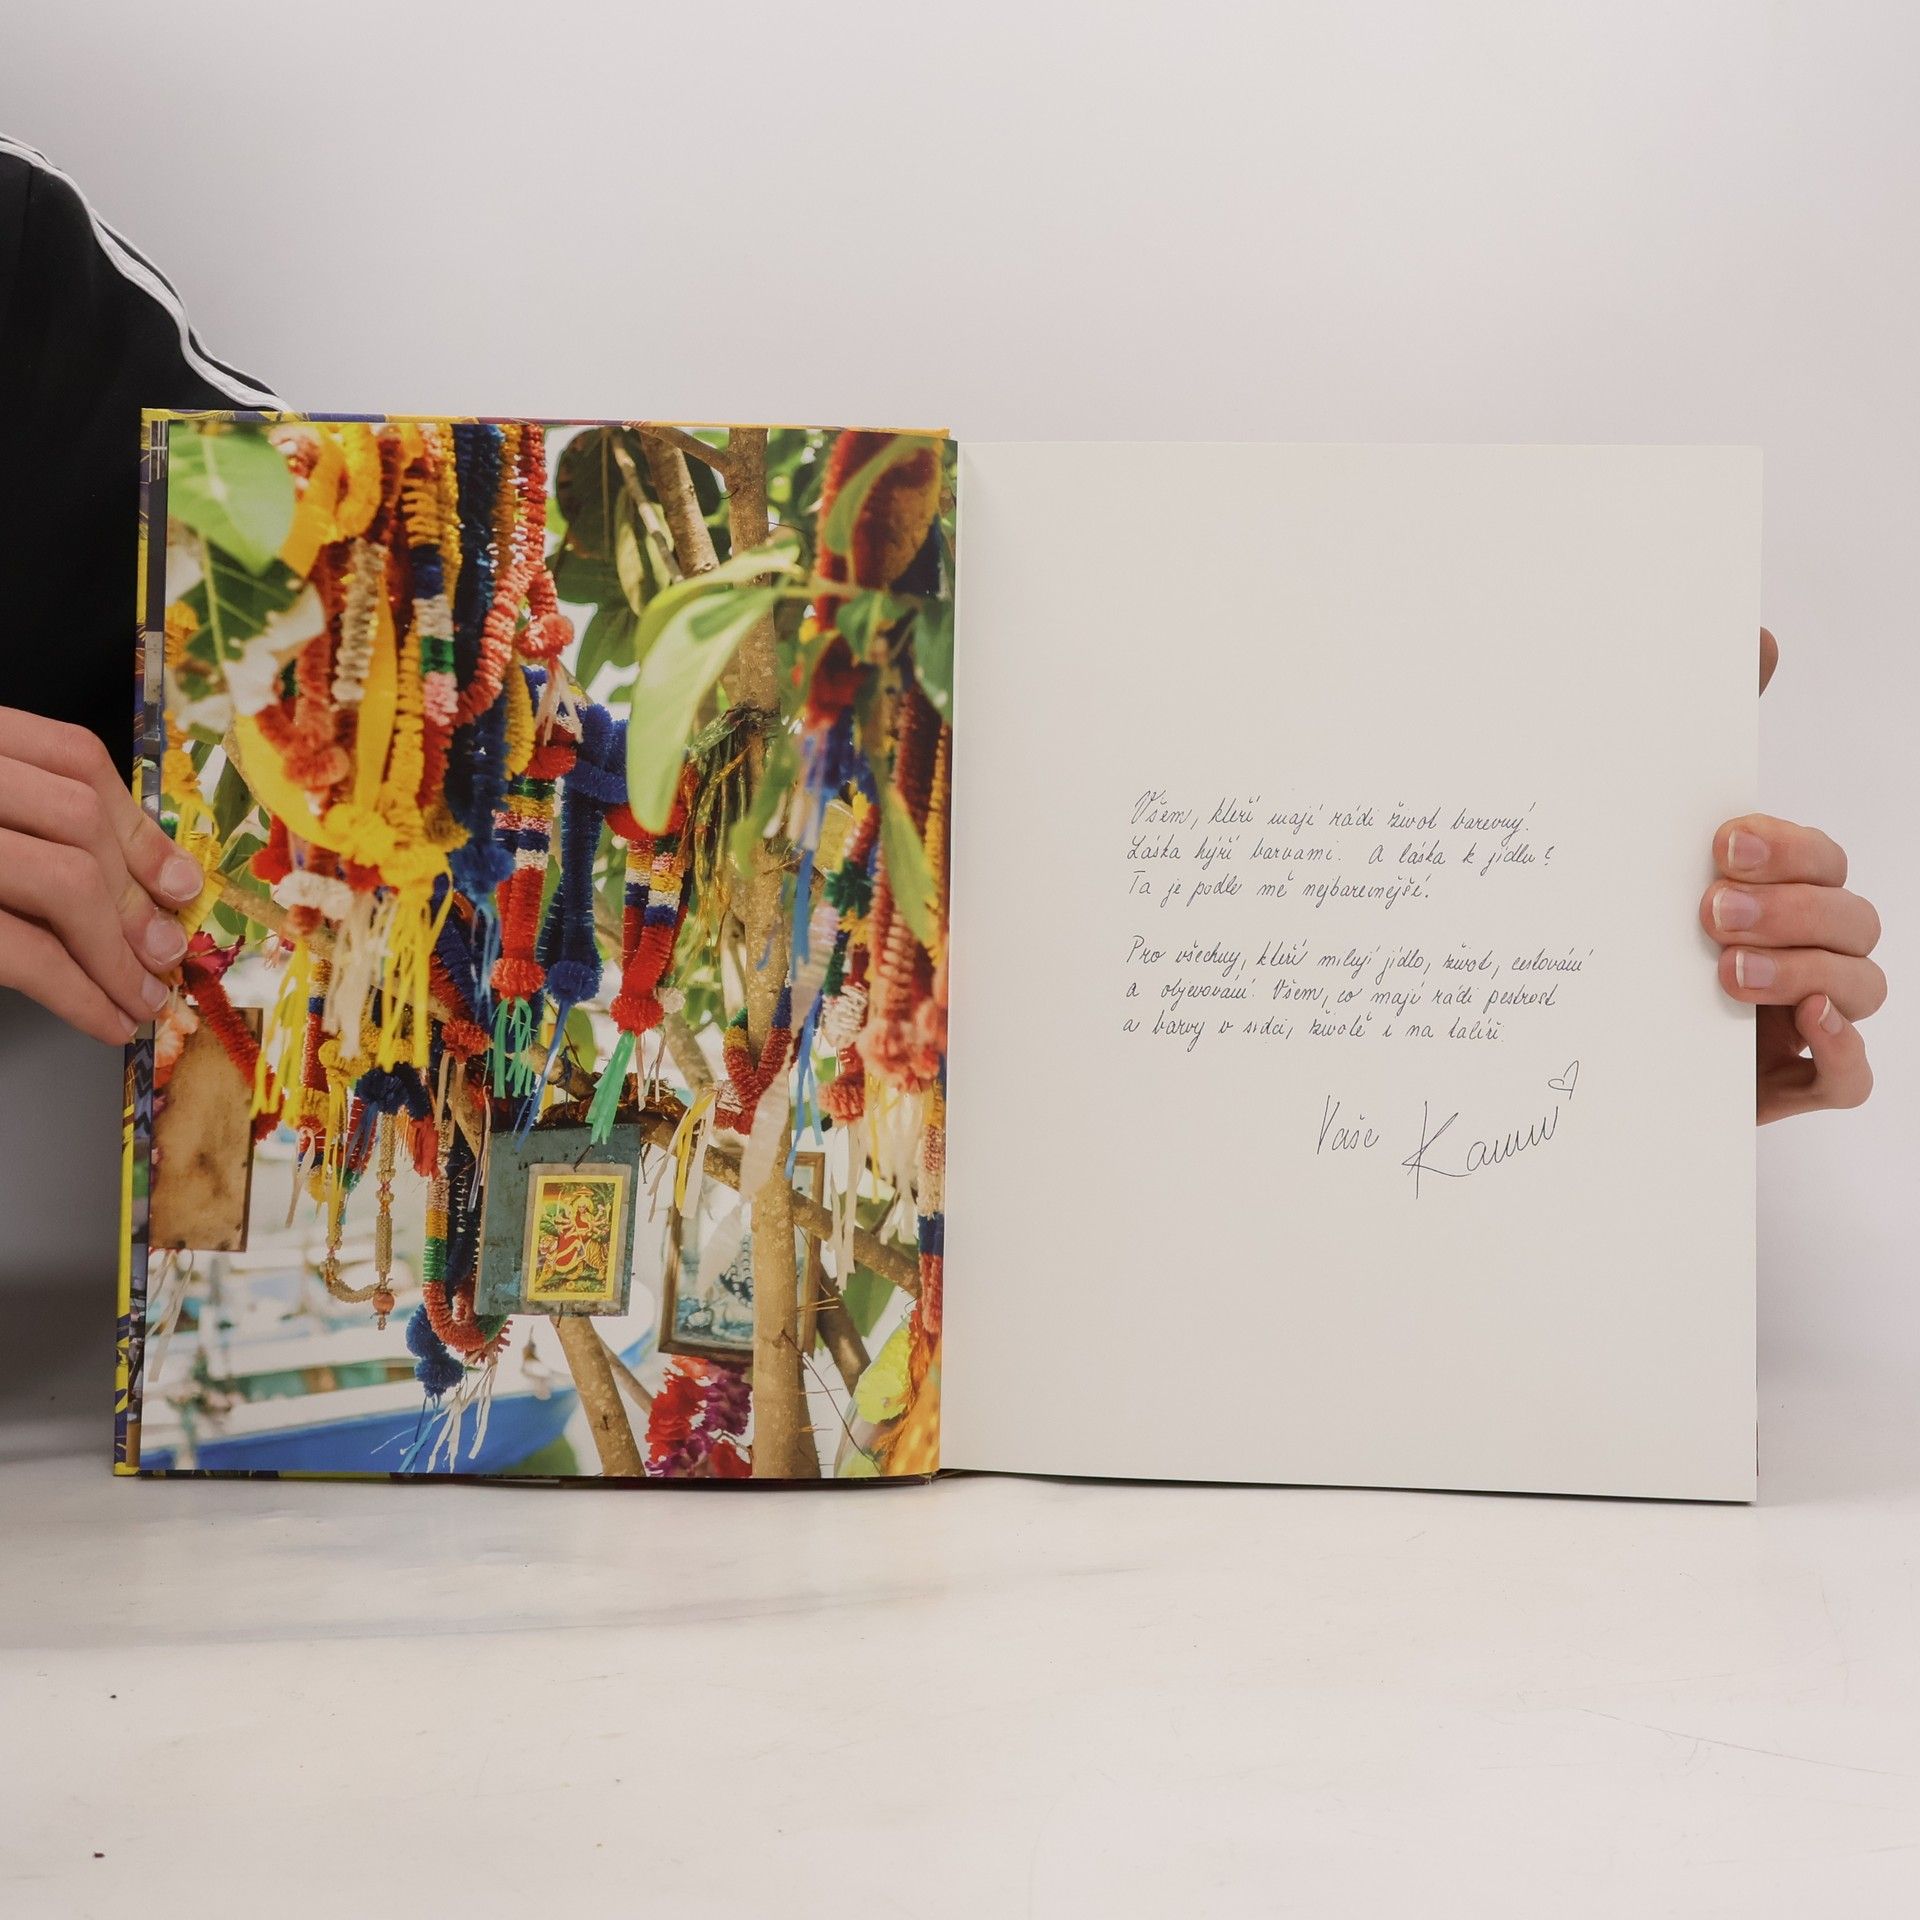 Všem, kteří mají rádi život barevný.
Láska hýří barvami. A láska k jídlu?
Ta je podle mě nejbarevnější.
Pro všechny, kteří milují jídlo, život, cestování
a objevování. Všem, co mají rádi pestrost
a barvy v srdci, životě i na talíři.
Vaše Kamu